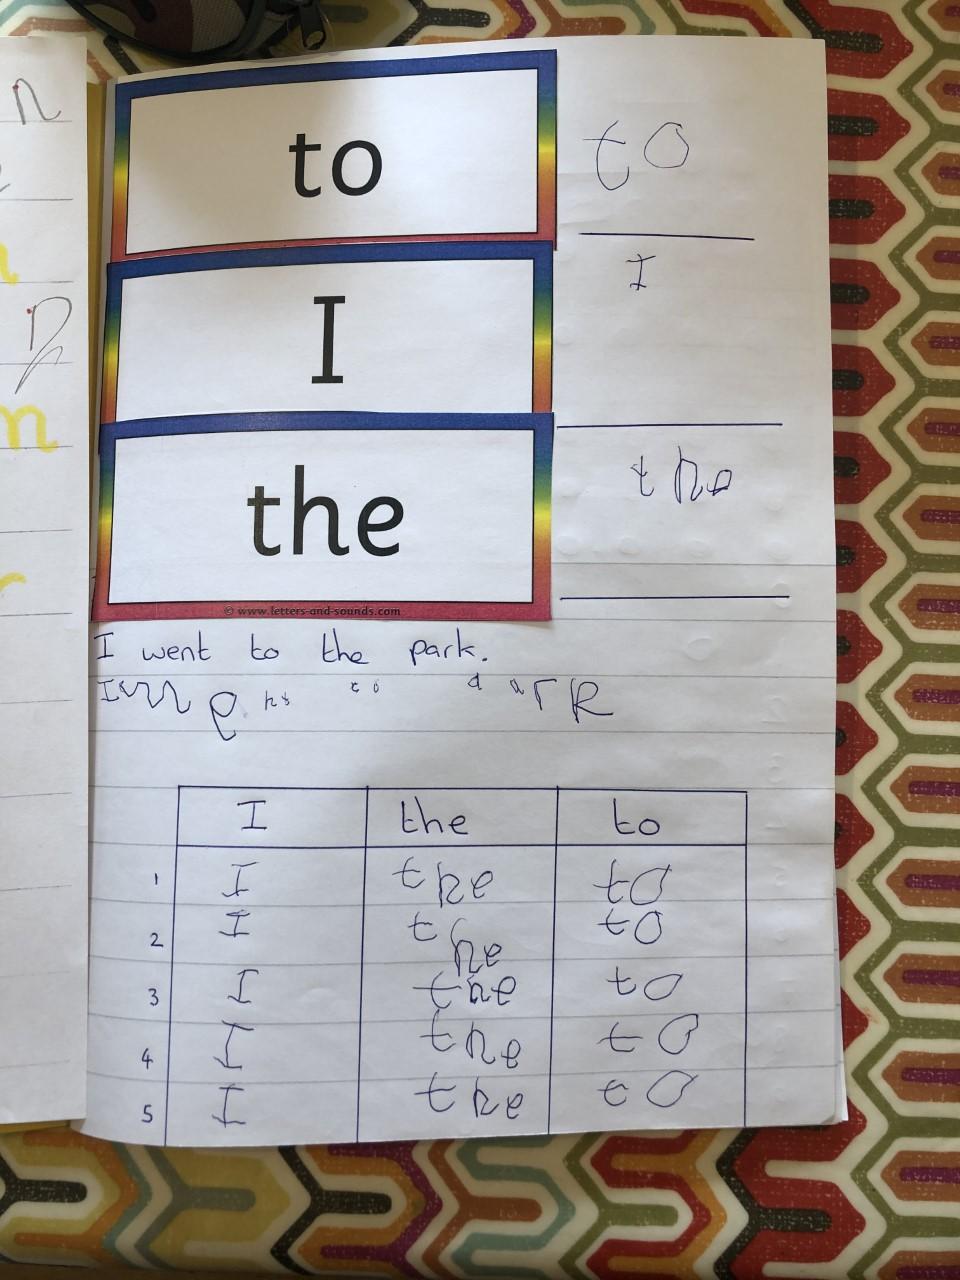 n
to to
p
I I
n
the the
© www.letters-and-sounds.com
I went to the park.
I to a r R
I the to
1 I the to
2 I the to
3 I the to
4 I the to
5 I the to